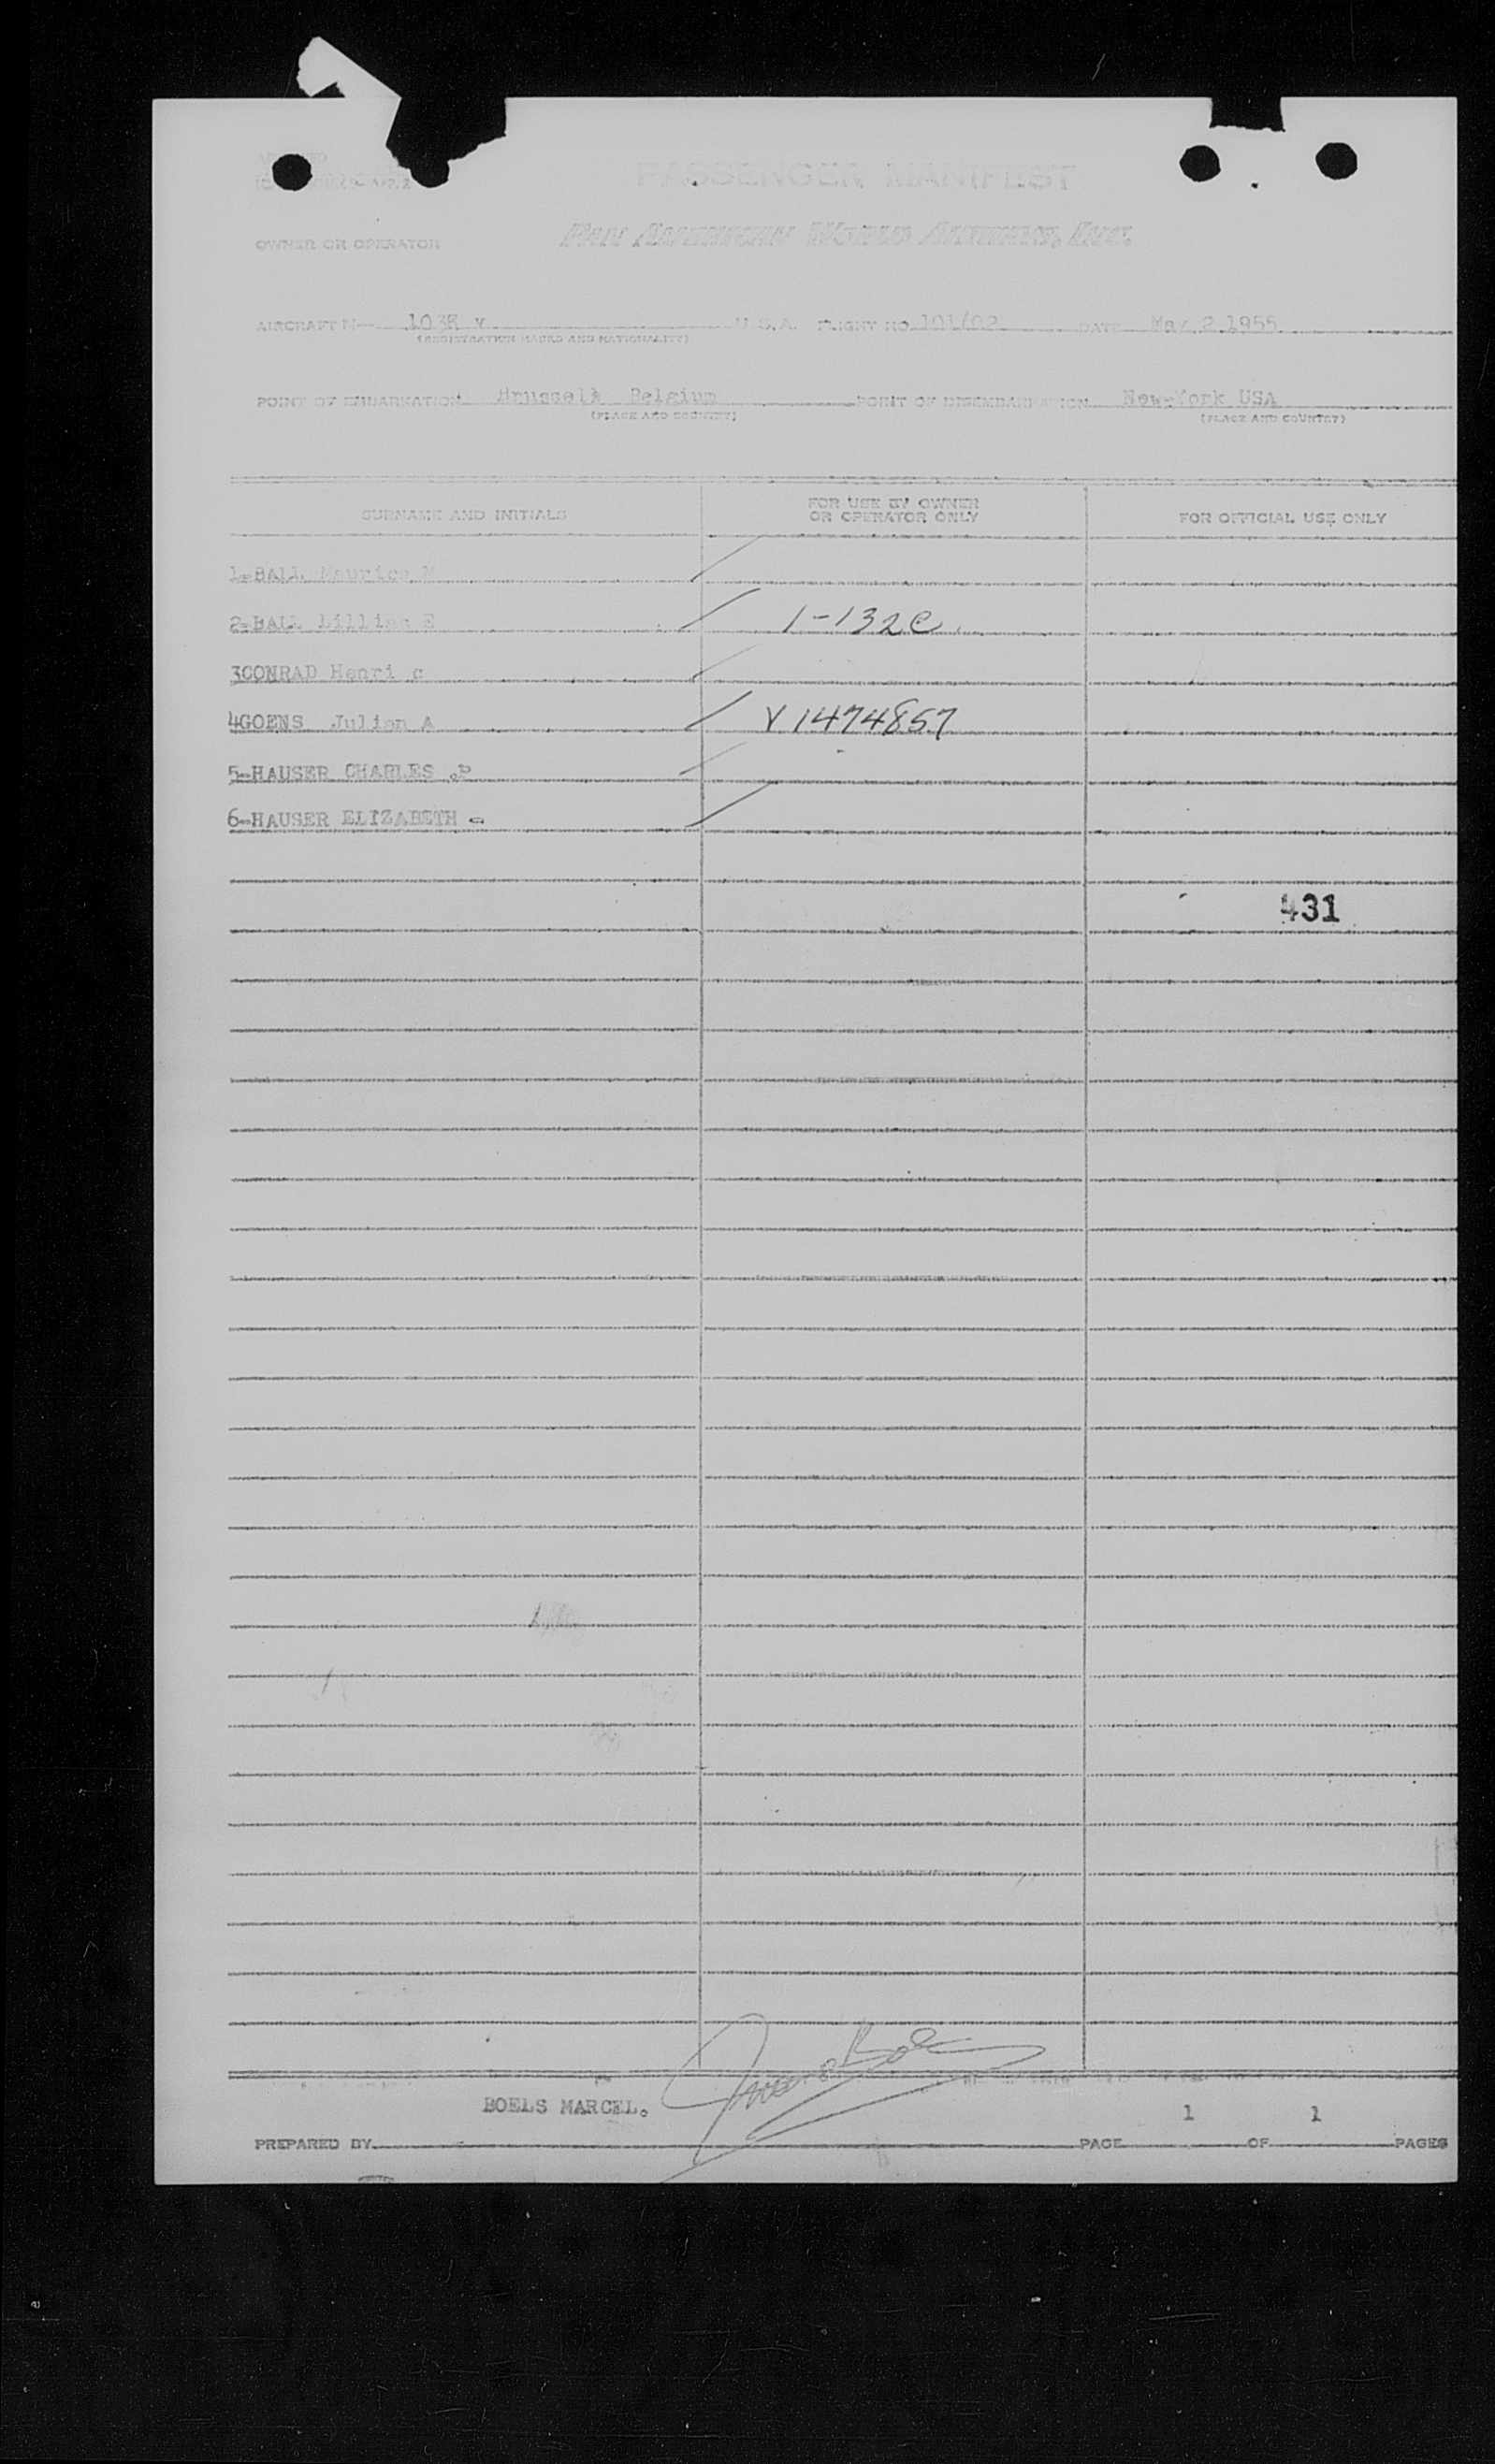 PASSENGER MANIFEST
OWNER OR OPERATOR
PAN AMERICAN WORLD AIRWAYS, INC.
AIRCRAFT N— 1038 V U.S.A. FLIGHT NO 101/02 DATE May 2 1955
(REGISTRATION MARKS AND NATIONALITY)
POINT OF EMBARKATION Brussels Belgium POINT OF DISEMBARKATION New-York USA
(PLACE AND COUNTRY) (PLACE AND COUNTRY)
SURNAME AND INITIALS FOR USE BY OWNER OR OPERATOR ONLY FOR OFFICIAL USE ONLY
1-BALL Maurice M
2-BALL Lillian E 1-132C
3CONRAD Henri c
4GOENS Julian A V1474857
5-HAUSER CHARLES .P
6-HAUSER ELIZABETH -
431
BOELS MARCEL. 1 1
PREPARED BY PAGE OF PAGES